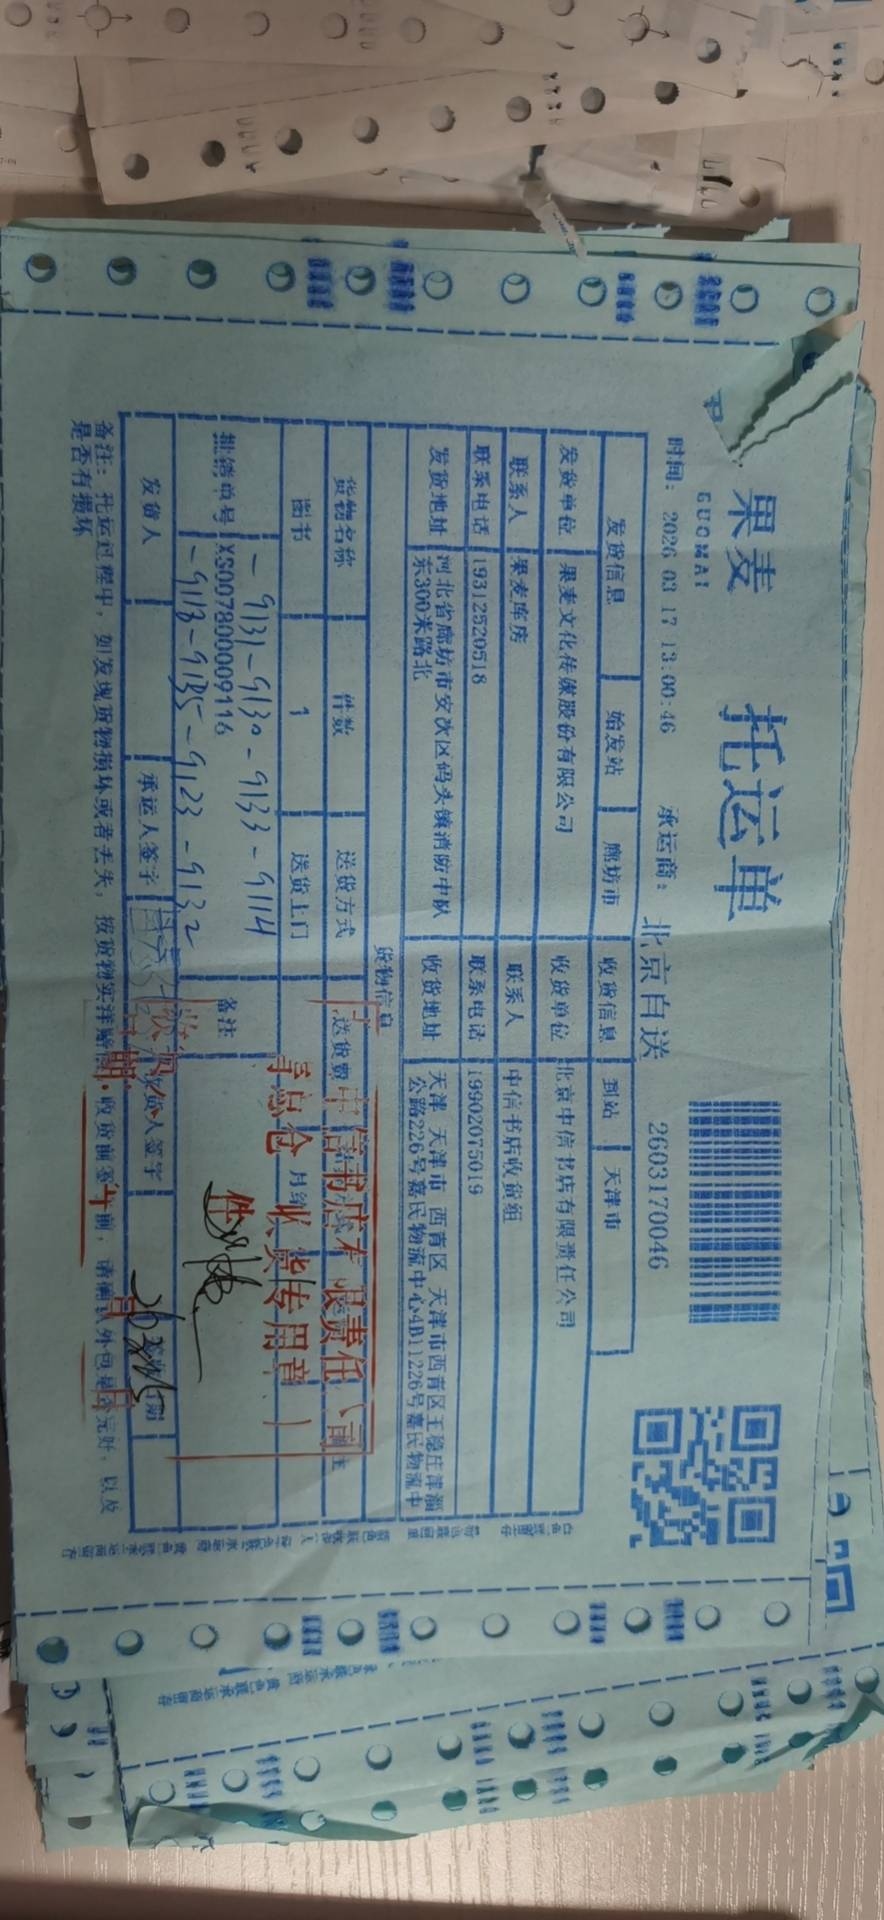 果麦
GUOMAI
托运单
2603170046
时间: 2026 03 17 13:00:46 承运商: 北京自送
发货信息 始发站 廊坊市 收货信息 到站 天津市
发货单位 果麦文化传媒股份有限公司 收货单位 北京中信书店有限责任公司
联系人 果麦库房 联系人 中信书店收货组
联系电话 19312520518 联系电话 19902075019
发货地址 河北省廊坊市安次区码头镇消防中队东300米路北 收货地址 天津 天津市 西青区 天津市西青区王稳庄津淄公路226号嘉民物流中心4B11226号嘉民物流中
货物信息
货物名称 件数 送货方式 送货费
图书 1 送货上门 月结
-9131-9130-9133-9114
批销单号 XS007800009116 备注
-9113-9135-9123-9132
发货人 承运人签字 收货人签字
中信书店有限责任公司
收货专用章
备注: 托运过程中, 如发现货物损坏或者丢失, 按货物实洋赔偿, 收货前签字前, 请确认外包是否完好, 以及
是否有损坏